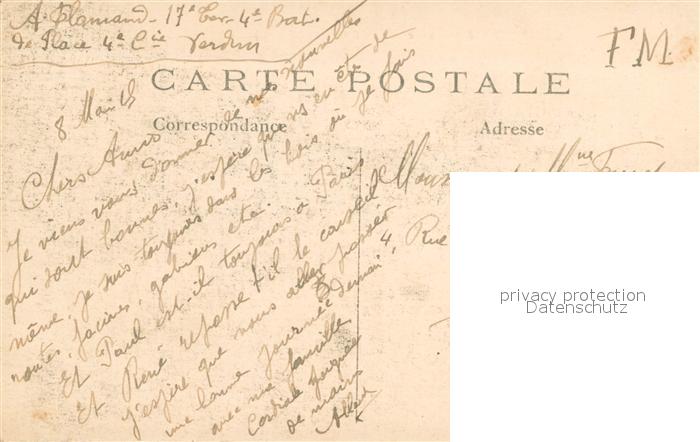 A Flamand - 17e Ter - 4e Bat.
de Place 4e Cie Verdun
FM.
CARTE POSTALE
Correspondance
Adresse
8 Mai 15
Chers Amis
Je viens vous donner de mes nouvelles
qui sont bonnes, j'espère qu'il en est de
même, je suis toujours dans les bois où je fais
routes, fascines, gabions etc.
Et Paul est-il toujours à Paris
Et René repasse-t-il le conseil
J'espère que nous allons passer
une bonne journée demain,
avec ma famille
Cordiale poignée
de mains
4, Rue
privacy protection
Datenschutz